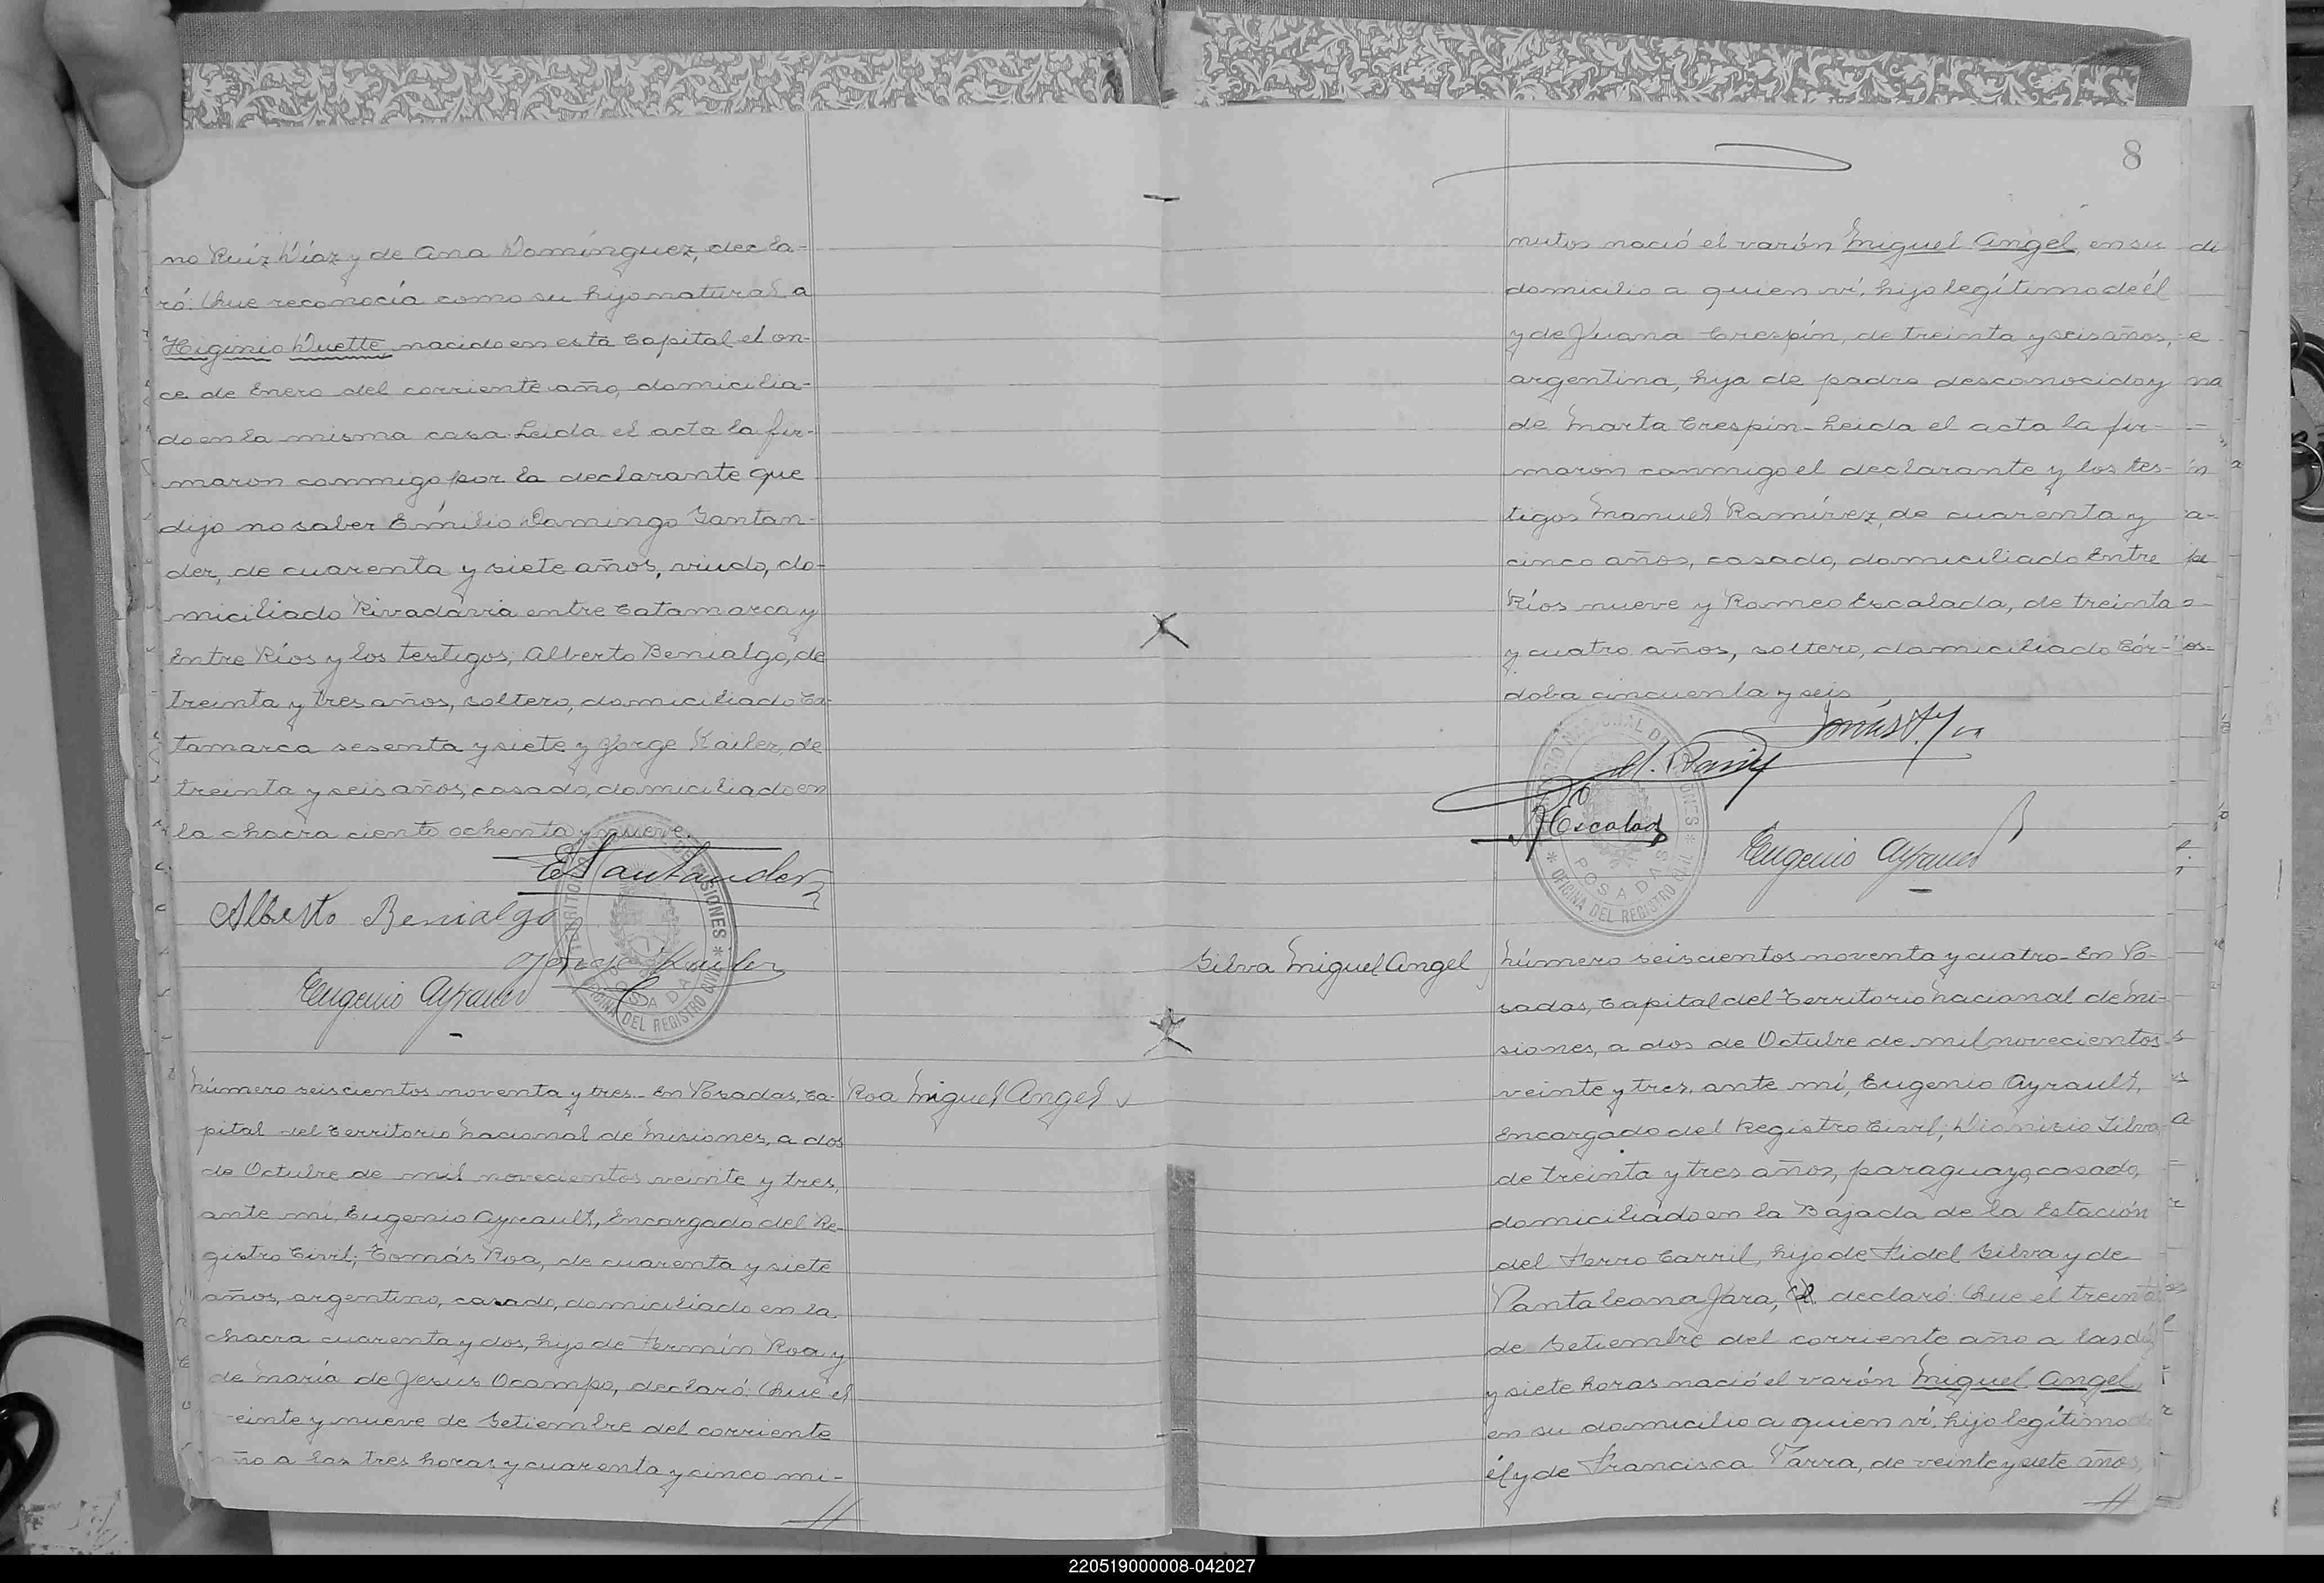 no Ruíz Díaz y de Ana Domínguez, decla-
ró: Que reconocía como su hijo natural a
Higinio Duette nacido en esta Capital el on-
ce de Enero del corriente año, domicilia-
do en la misma casa. Leida el acta la fir-
maron conmigo por la declarante que
dijo no saber Emilio Domingo Santan-
der, de cuarenta y siete años, viudo, do-
miciliado Rivadavia entre Catamarca y
Entre Ríos y los testigos; Alberto Benialgo, de
treinta y tres años, soltero, domiciliado Ca-
tamarca sesenta y siete y Jorge Kailer, de
treinta y seis años, casado, domiciliado en
la chacra ciento ochenta y nueve.
E Santander
Alberto Benialgo
Jorge Kailer
Eugenio Ayrault
TERRITORIO NACIONAL DE MISIONES
POSADAS
OFICINA DEL REGISTRO CIVIL
Número seiscientos noventa y tres. En Posadas, Ca-
Roa Miguel Angel
pital del Territorio Nacional de Misiones, a dos
de Octubre de mil novecientos veinte y tres,
ante mí, Eugenio Ayrault, Encargado del Re-
gistro Civil; Tomás Roa, de cuarenta y siete
años, argentino, casado, domiciliado en la
chacra cuarenta y dos, hijo de Fermín Roa y
de María de Jesus Ocampo, declaró: Que el
veinte y nueve de Setiembre del corriente
año a las tres horas y cuarenta y cinco mi-
8
nutos nació el varón Miguel Angel, en su
domicilio a quien ví, hijo legítimo de él
y de Juana Crespín, de treinta y seis años,
argentina, hija de padre desconocido y
de Marta Crespín. Leida el acta la fir-
maron conmigo el declarante y los tes-
tigos Manuel Ramírez, de cuarenta y
cinco años, casado, domiciliado Entre
Ríos nueve y Romeo Escalada, de treinta
y cuatro años, soltero, domiciliado Cór-
doba cincuenta y seis
Tomás Roa
M. Ramirez
R Escalada
Eugenio Ayrault
TERRITORIO NACIONAL DE MISIONES
POSADAS
OFICINA DEL REGISTRO CIVIL
Silva Miguel Angel
Número seiscientos noventa y cuatro. En Po-
sadas, Capital del Territorio Nacional de Mi-
siones, a dos de Octubre de mil novecientos
veinte y tres, ante mí, Eugenio Ayrault,
Encargado del Registro Civil; Dionisio Silva,
de treinta y tres años, paraguayo, casado,
domiciliado en la Bajada de la Estación
del Ferro Carril, hijo de Fidel Silva y de
Pantaleona Jara, declaró: Que el treinta
de Setiembre del corriente año a las diez
y siete horas nació el varón Miguel Angel,
en su domicilio a quien ví, hijo legítimo de
él y de Francisca Parra, de veinte y siete años,
220519000008-042027